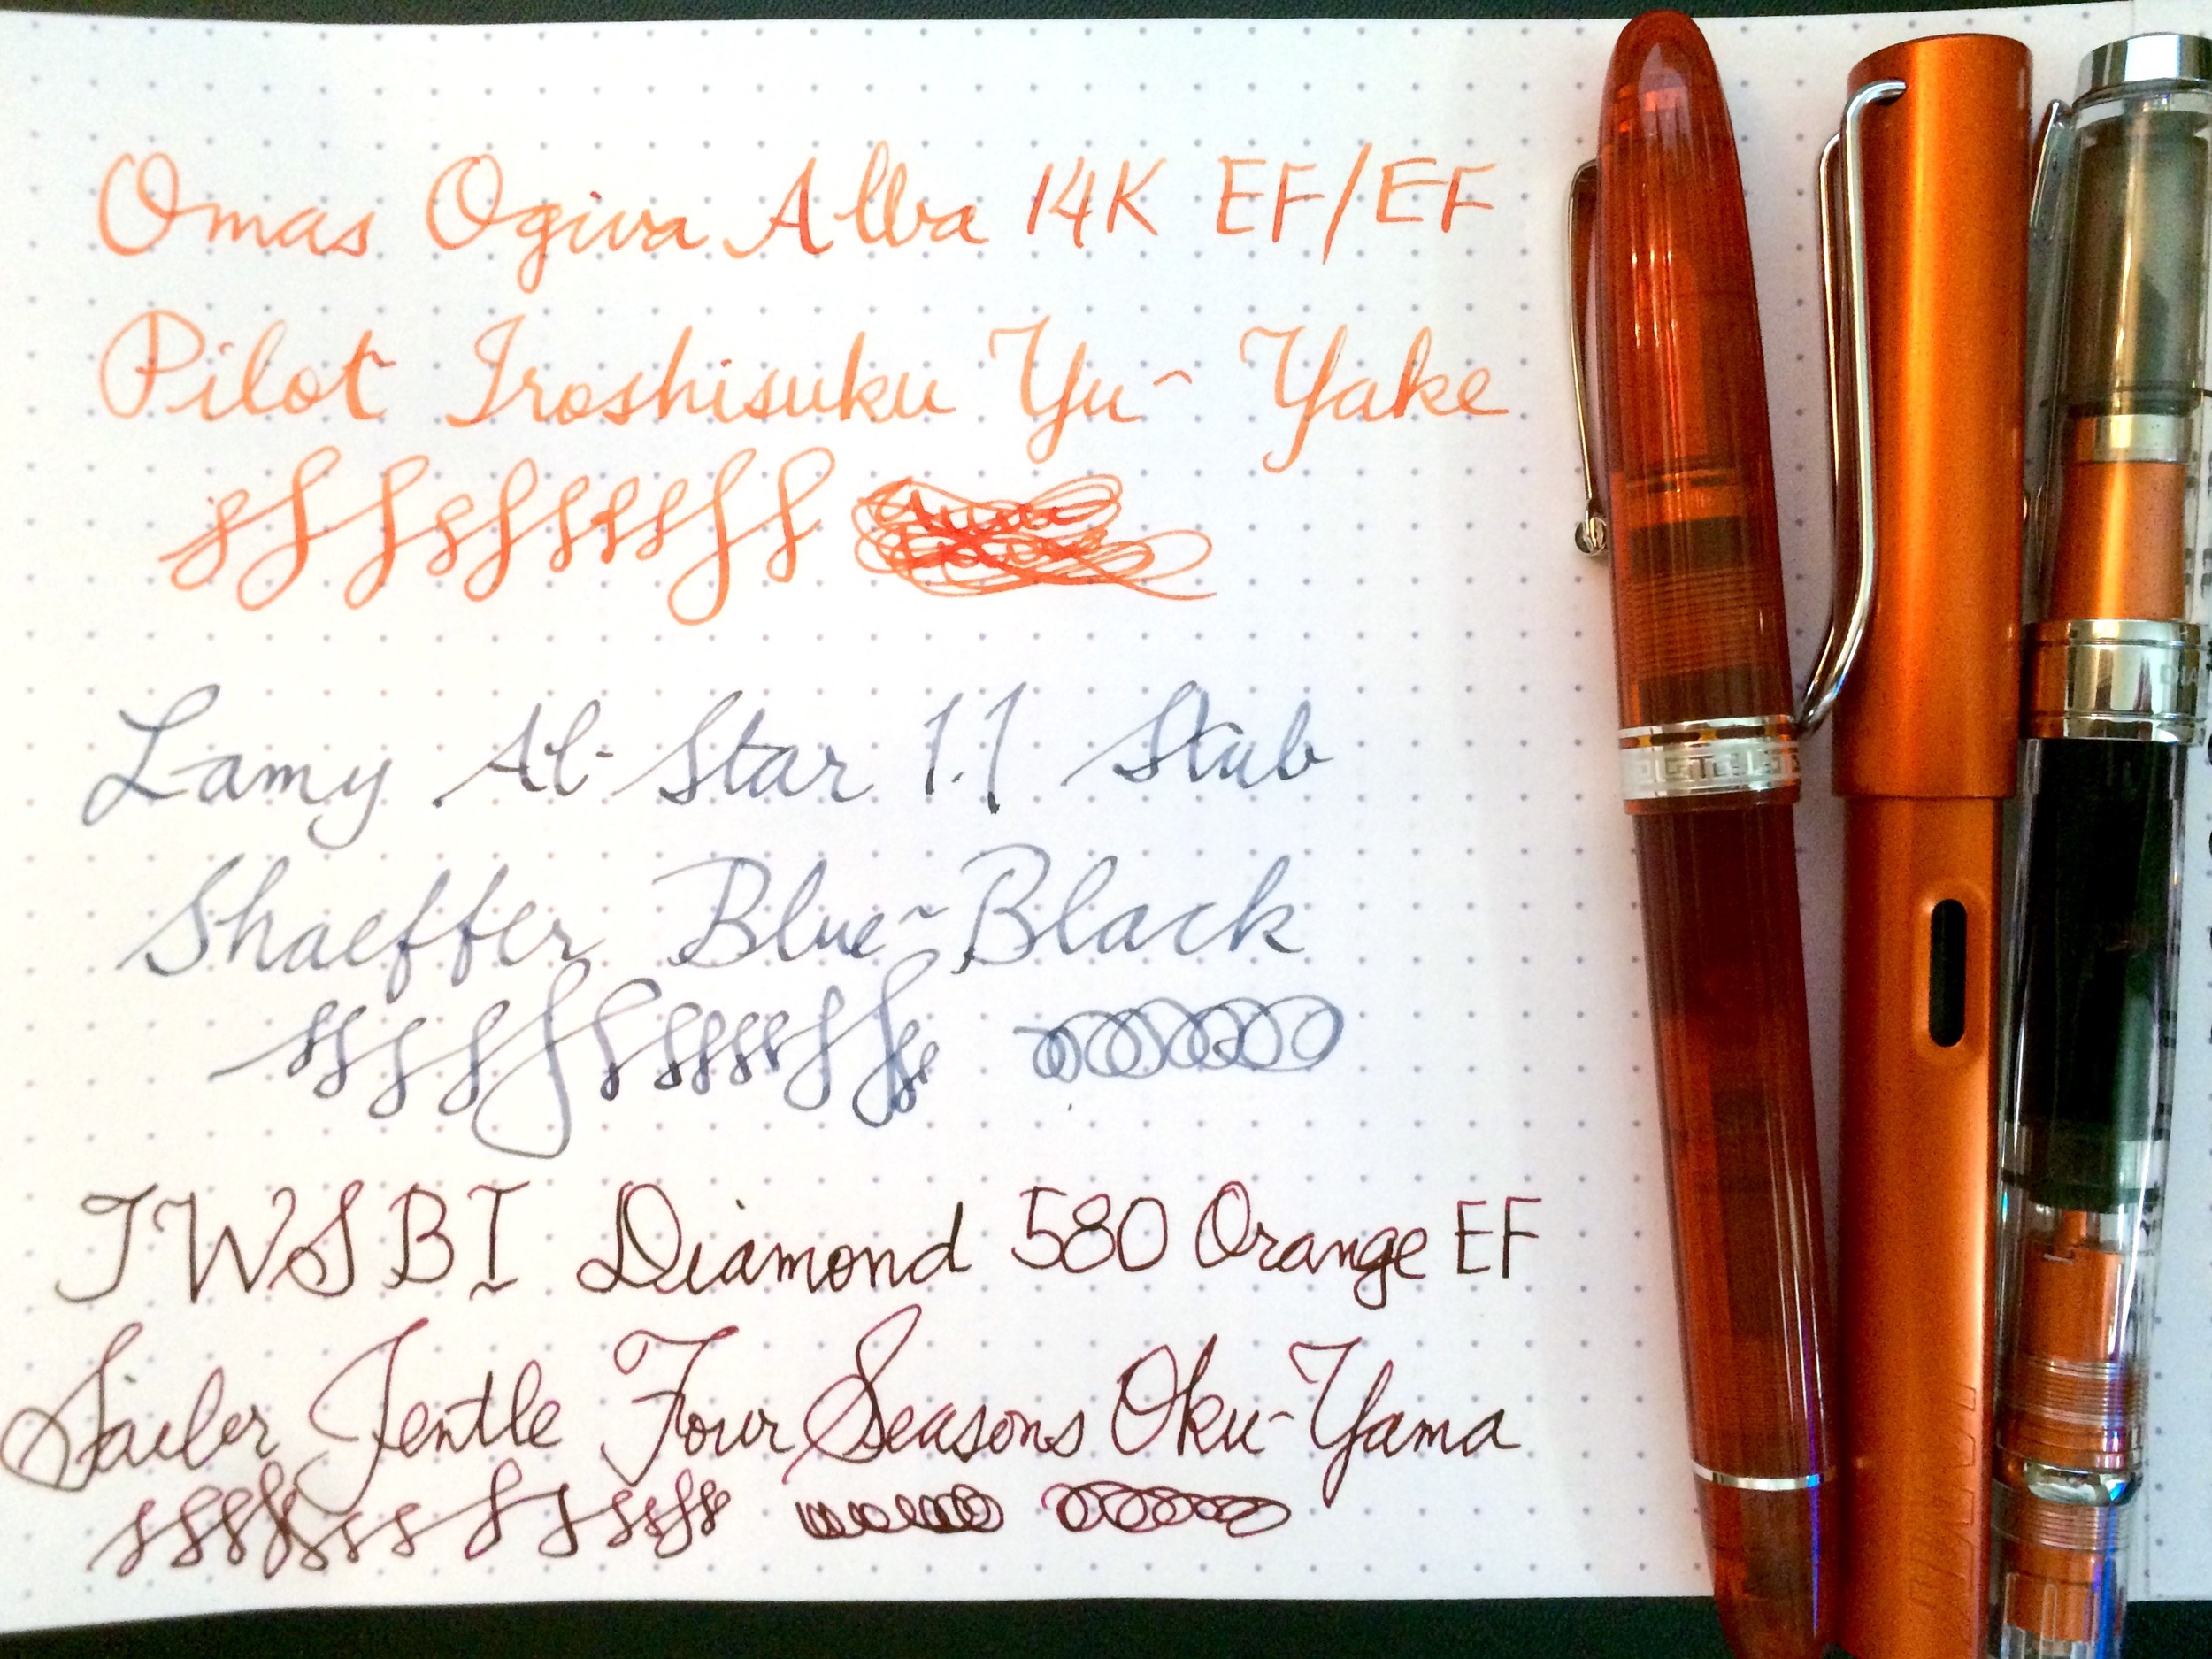 Omas Ogiva Alba 14K EF/EF
Pilot Iroshisuku Yu-Yake
Lamy Al-Star 1.1 Stub
Shaeffer Blue-Black
TWSBI Diamond 580 Orange EF
Sailor Jentle Four Seasons Oku-Yama
LAMY
DIA